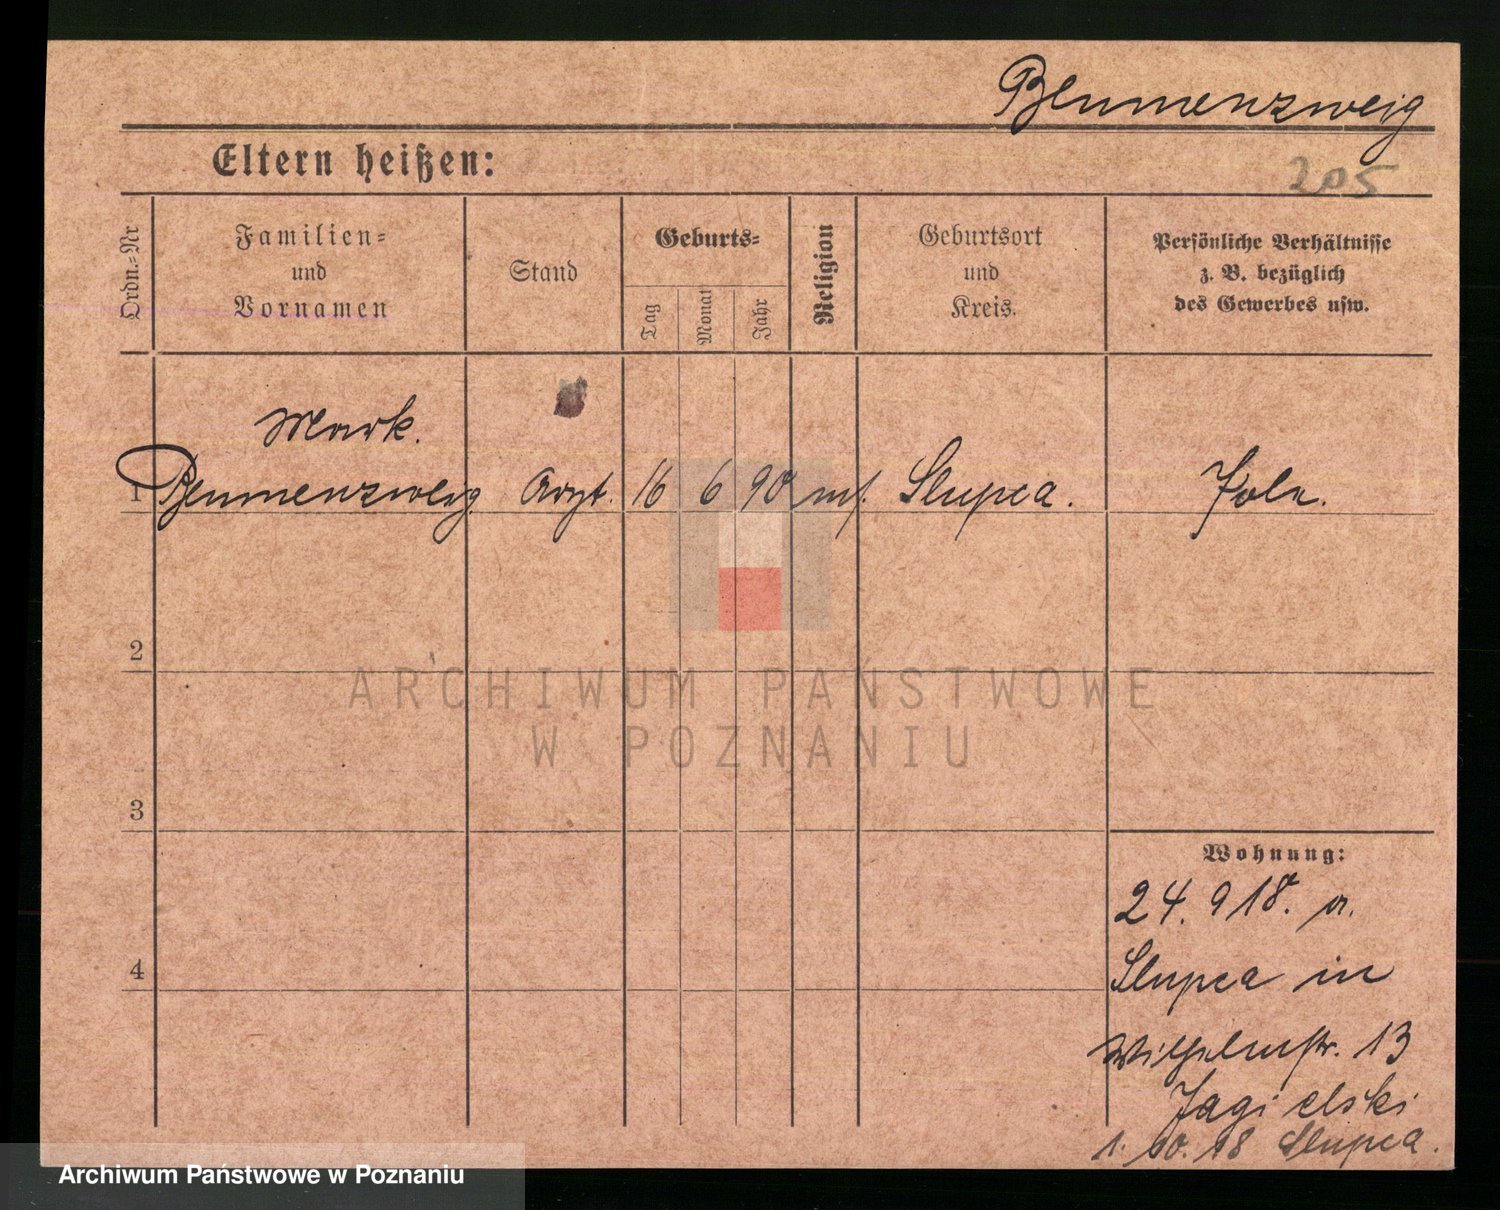 Blumenzweig
Eltern heißen:
205
Ordn.-Nr
Familien-
und
Vornamen
Stand
Geburts-
Tag
Monat
Jahr
Religion
Geburtsort
und
Kreis.
Persönliche Verhältnisse
z. B. bezüglich
des Gewerbes usw.
Mark.
1 Blumenzweig Arzt. 16 6 90 Slupca.
2
3
4
Wohnung:
24. 9 18. v.
Slupca in
Wilhelmstr. 13
Jagielski
1. 10. 18 Slupca.
ARCHIWUM PAŃSTWOWE
W POZNANIU
Archiwum Państwowe w Poznaniu